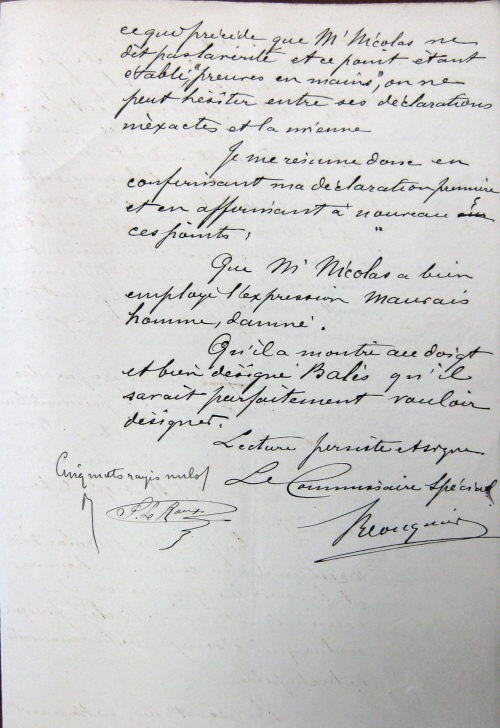 ce qui précède que Mr Nicolas ne
dit pas la vérité et ce point étant
établi, "preuves en mains", on ne
peut hésiter entre ses déclarations
inexactes et la mienne
Je me résume donc en
confirmant ma déclaration première
et en affirmant à nouveau
ces points,
Que Mr Nicolas a bien
employé l'expression Mauvais
homme, damné.
Qu'il a montré au doigt
et bien désigné Balès qu'il
savait parfaitement vouloir
désigner.
Lecture persiste et signe
Cinq mots rayés nuls
Le Commissaire Spécial